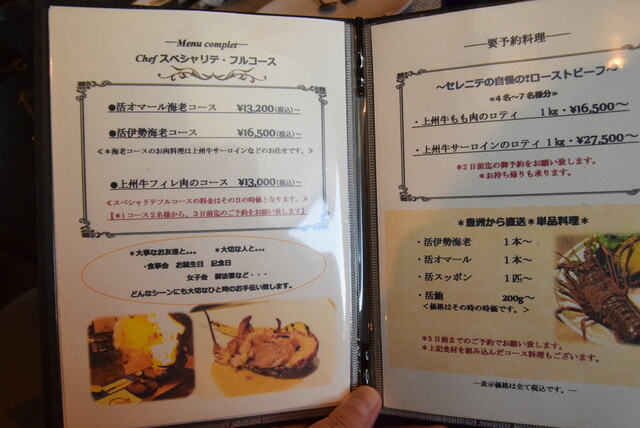 —Menu complet—
Chef スペシャリテ・フルコース
●活オマール海老コース ¥13,200(税込)～
●活伊勢海老コース ¥16,500(税込)～
≪＊海老コースのお肉料理は上州牛サーロインなどのお任せです。≫
●上州牛フィレ肉のコース ¥13,000(税込)～
≪スペシャリテフルコースの料金はその日の時価となります。≫
【＊1コース2名様から、3日前迄のご予約をお願い致します】
＊大事なお友達と… ＊大切な人と…
・食事会 お誕生日 記念日
女子会 御法要など・・・
どんなシーンにも大切なひと時のお手伝い致します。
—要予約料理—
～セレニテの自慢の!ローストビーフ～
≪4名～7名様分≫
・上州牛もも肉のロティ 1kg・¥16,500～
・上州牛サーロインのロティ 1kg・¥27,500～
＊2日前迄の御予約をお願い致します。
＊お持ち帰りも承ります。
＊豊洲から直送＊単品料理＊
・活伊勢海老 1本～
・活オマール 1本～
・活スッポン 1匹～
・活鮑 200g～
＜価格はその時の時価です。＞
＊3日前までのご予約でお願い致します。
＊上記食材を組み込んだコース料理もございます。
—表示価格は全て税込です。—